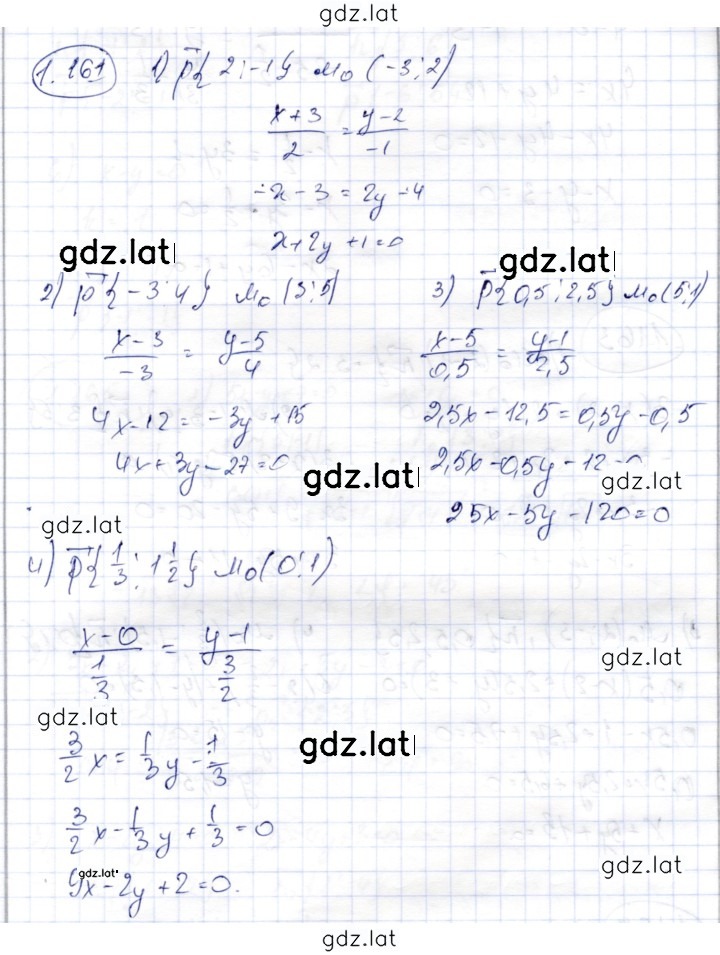 gdz.lat
1.161 1) p⃗{2;-1} M₀(-3;2)
(x+3)/2 = (y-2)/-1
-x-3 = 2y-4
x+2y+1=0
gdz.lat
2) p⃗{-3;4} M₀(3;5)
(x-3)/-3 = (y-5)/4
4x-12=-3y+15
4x+3y-27=0
gdz.lat
3) p⃗{0,5;2,5} M₀(5;1)
(x-5)/0,5 = (y-1)/2,5
2,5x-12,5=0,5y-0,5
2,5x-0,5y-12=0
25x-5y-120=0
gdz.lat
gdz.lat
gdz.lat
gdz.lat
4) p⃗{1/3; 1 1/2} M₀(0;1)
(x-0)/(1/3) = (y-1)/(3/2)
gdz.lat
gdz.lat
3/2 x = 1/3 y - 1/3
gdz.lat
3/2 x - 1/3 y + 1/3 = 0
gdz.lat
9x-2y+2=0.
gdz.lat
gdz.lat